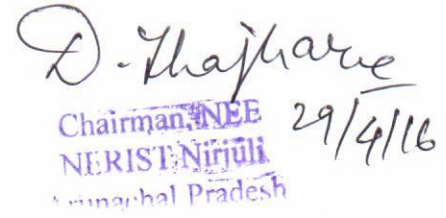 D. Thajhare
Chairman, NEE 29/4/16
NERIST, Nirjuli
Arunachal Pradesh